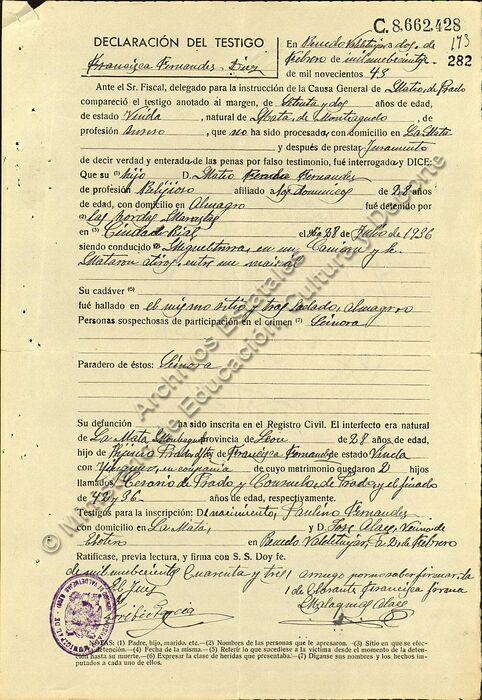 C.8.662.428
173
282
DECLARACIÓN DEL TESTIGO
Francisca Fernandez Diez
En Renedo Valdetuejar a dos de
Febrero de mil nuebecientos
de mil novecientos 43
Ante el Sr. Fiscal, delegado para la instrucción de la Causa General de Mateo de Prado
compareció el testigo anotado al margen, de setenta y dos años de edad,
de estado Viuda, natural de Mata de Montiaguelo, de
profesión, que no ha sido procesado, con domicilio en La Mata
y después de prestar Juramento
de decir verdad y enterada de las penas por falso testimonio, fué interrogada y DICE:
Que su (1) hijo D. Mateo Fernandez
de profesión Religioso afiliado a los dominicos de 28 años
de edad, con domicilio en Almagro fué detenido por
(2) las hordas Marxistas
en (3) Ciudad Real el (4) día 28 de Julio de 1936
siendo conducido (5) Miguelturra en un Camion y le
Mataron a tiros, entre un maizal
Su cadáver (6)
fué hallado en el mismo sitio y trasladado, almagro
Personas sospechosas de participación en el crimen (7) Seinora
Paradero de éstos: Seinora
Su defunción ha sido inscrita en el Registro Civil. El interfecto era natural
de La Mata provincia de Leon de 28 años de edad,
hijo de Prado y de Francisca Fernandez estado Viuda
con en compania de cuyo matrimonio quedan 2 hijos
llamados Cesareo de Prado y Consuelo de Prado y el finado
de 42 y 36 años de edad, respectivamente.
Testigos para la inscripción: D. Paulino Fernandez
con domicilio en La Mata, y D. Jose Alaez, Vecino de
en Renedo Valdetuejar, a 2 de Febrero
Ratifícase, previa lectura, y firma con S. S. Doy fe.
de mil nuebecientos Cuarenta y tres, a ruego por no saber firmar, la
declarante Francisca firma
El Juez
Garcia
Malaquias Alaez
NOTAS: (1) Padre, hijo, marido, etc.—(2) Nombres de las personas que le apresaron.—(3) Sitio en que se efectuó
detención.—(4) Fecha de la misma.—(5) Referir lo que sucediese a la víctima desde el momento de la deten-
hasta su muerte.—(6) Expresar la clase de heridas que presentaba.—(7) Díganse sus nombres y los hechos im-
putados a cada uno de ellos.
© Archivos Estatales
Ministerio de Educación, Cultura y Deporte